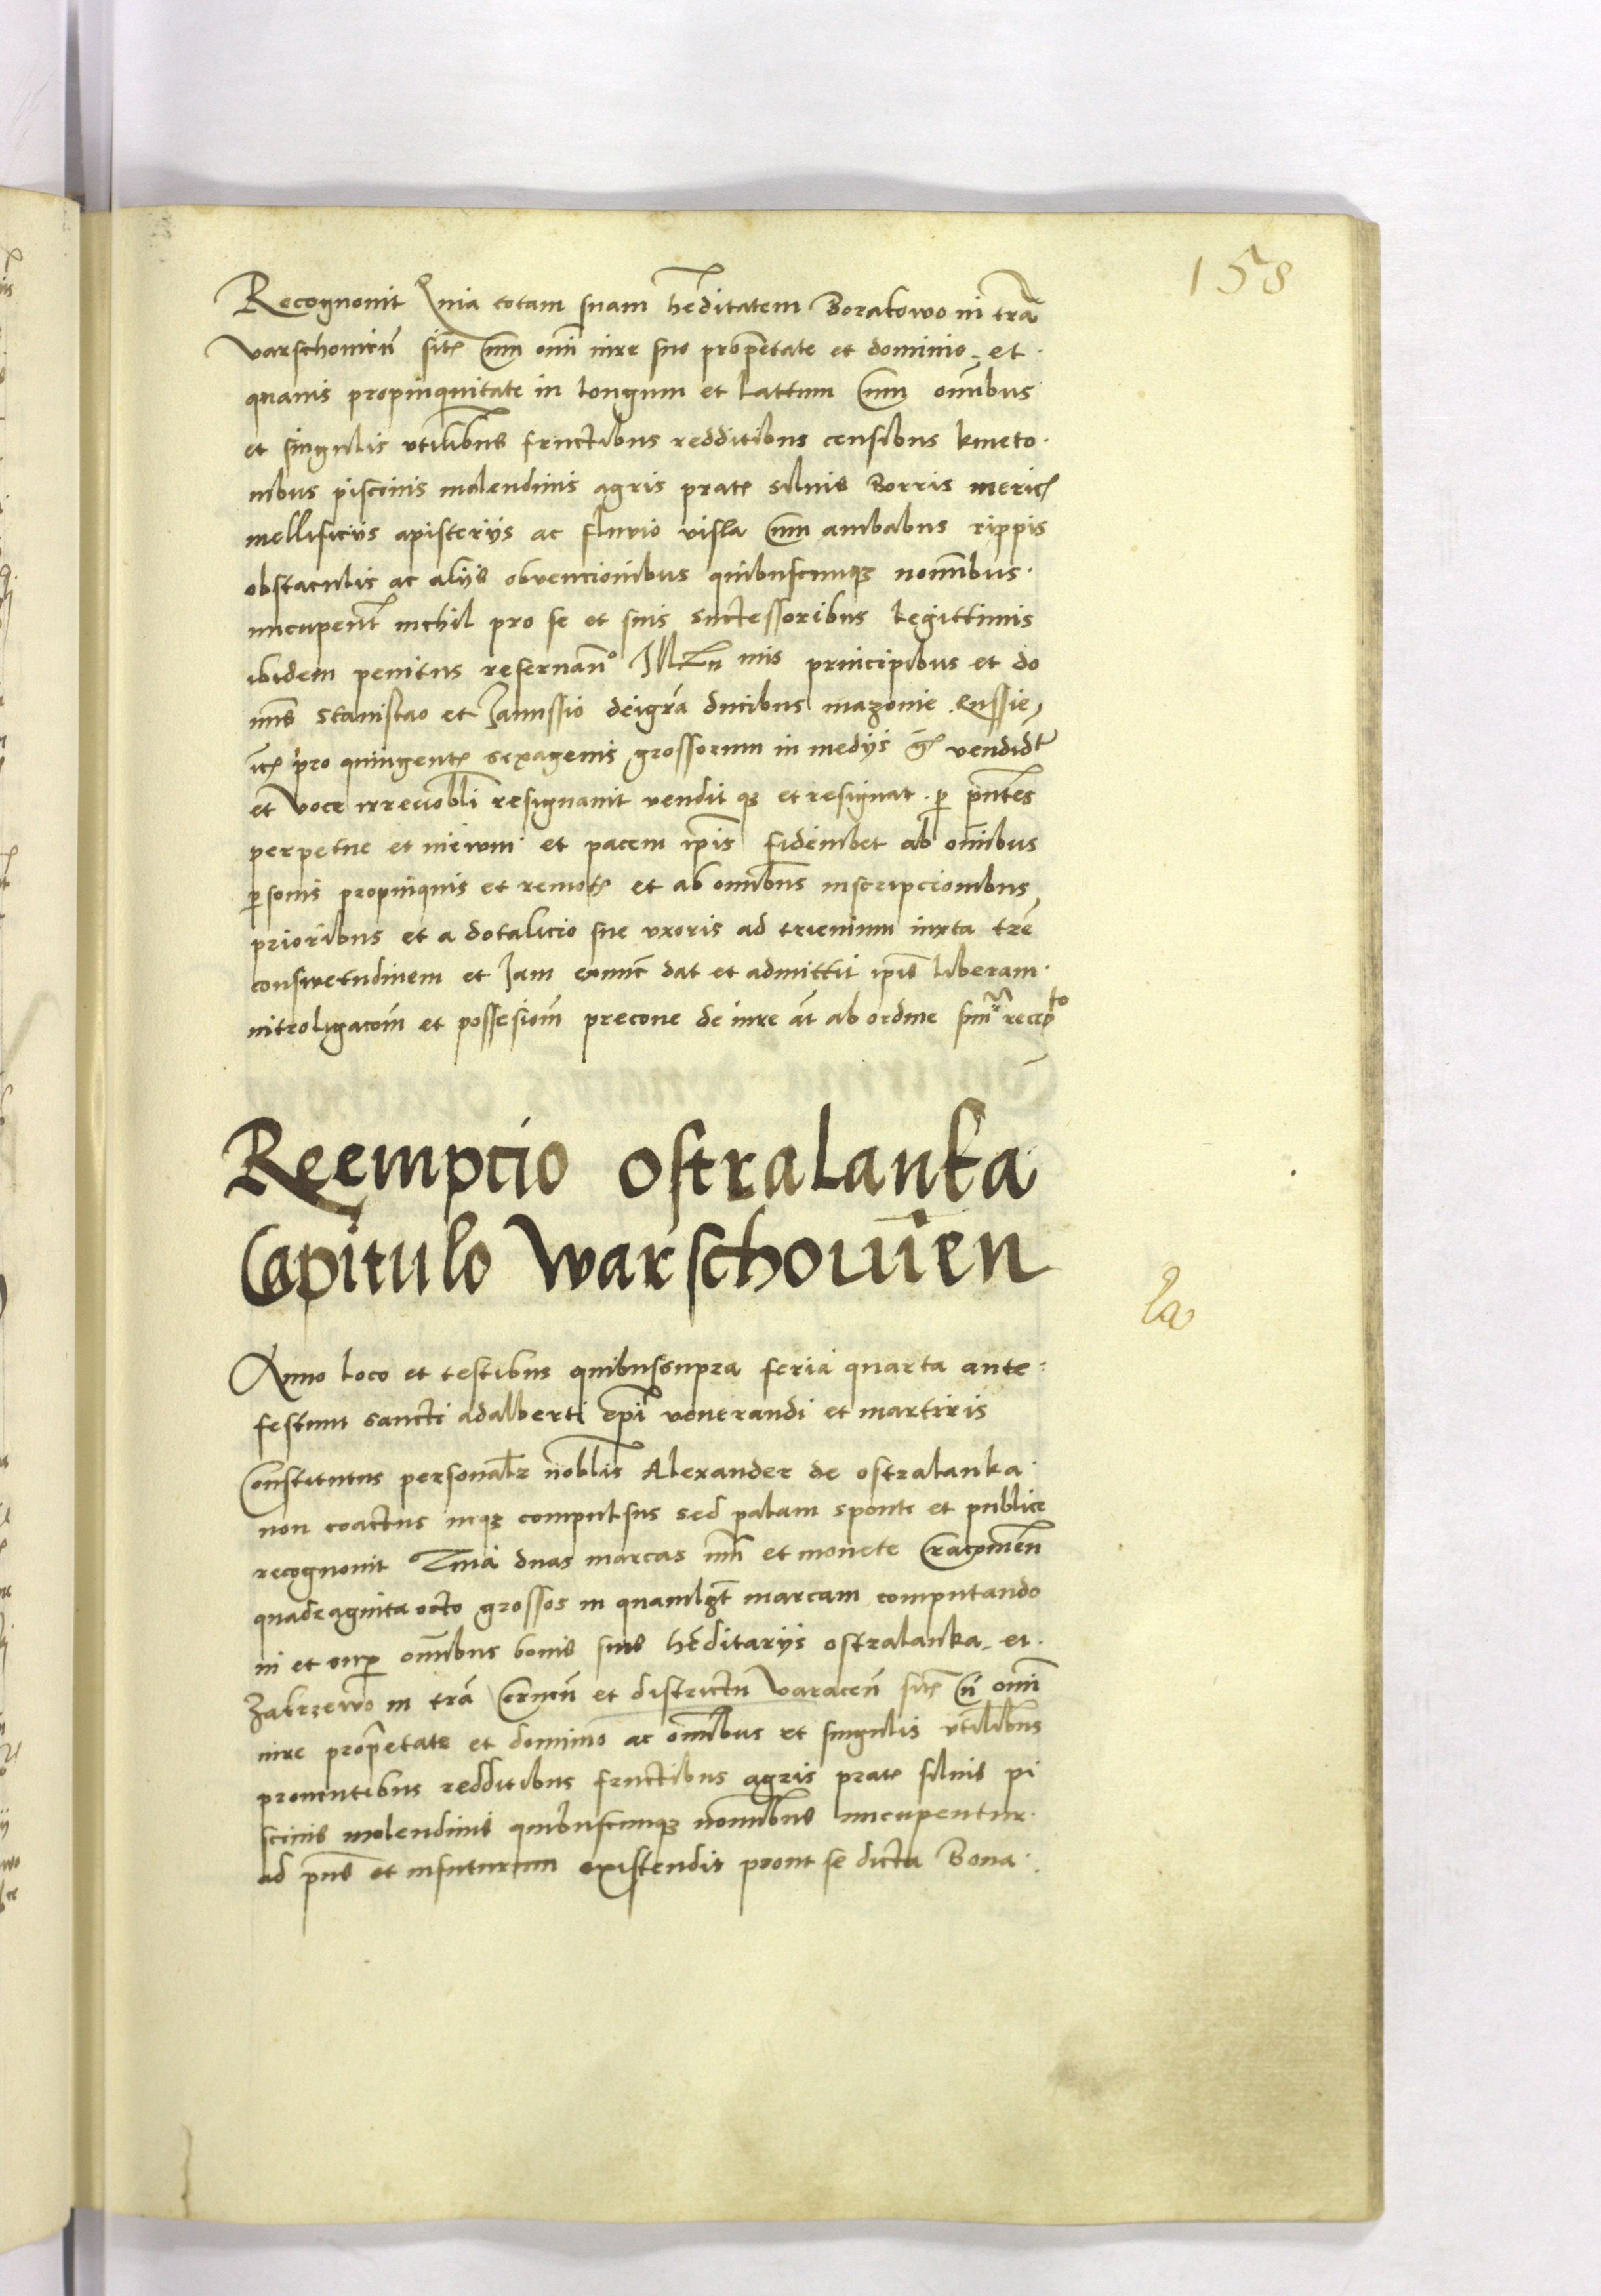 158
Recognouit Quia totam suam hẽditatem Boratowo in trã
varschouieñ sitẽ cum omĩ iure suo proprẽtate et dominio et
quauis propinquitate in longum et lattum cum omĩbus
et singulis vtilibus fructibus redditibus censibus kmeto
nibus piscinis molendinis agris pratẽ siluis Borris mericẽ
mellificiis apisterijs ac fluvio visla cum ambabus rippis
obstaculis ac alijs obvencionibus quibuscumqȝ nomĩbus
nucupent̃ nichil pro se et suis suctessoribus legittimis
ibidem penitus reseruan̄o Ill mis principibus et do
mis Stanislao et Janussio deigrã ducibus mazouie Russie
pro quingentẽ sexagenis grossorum in medijs vendidt
et voce irreuobli resignauit vendit qȝ et resignat p̲ pñtes
perpetue et in eiuum et pacem ipĩs fideiubet ab omĩbus
p̲sonis propinquis et remotẽ et ab omĩbus inscripcionibus
prioribus et a dotalicio sue vxoris ad trienium iuxta trẽ
consuetudinem et Jam exnunc dat et admittit ipĩs liberam
intreoligacom̃ et possesiom̃ precone de iure ãt ab ordine recepto
Reempcio ostralanka
Capitulo warschouien
la
Anno loco et testibus quibussupra feria quarta ante
festum sancti adalberti ep̃i venerandi et martiris
Constitutus personal̃r nobl̃is Alexander de ostralanka
non coactus neqȝ compulsus sed palam sponte et publice
recognouit Quia duas marcas num̃ et monete Cracouieñ
quadraginta octo grossos in quamlȝt̃ marcam computando
in et sup̲ omĩbus bonis suis hẽditarijs ostralanka et
Zakrzewo in trã Cerneñ et districtu varaceñ sitẽ cũ omĩ
iure proprẽtate et dominio ac omĩbus et singulis vtilibus
prouentibus redditibus fructibus agris pratẽ siluis pi
scinis molendinis quibuscumqȝ nomĩbus nucupentur
ad pñs et infuturum existendis prout se dicta Bona